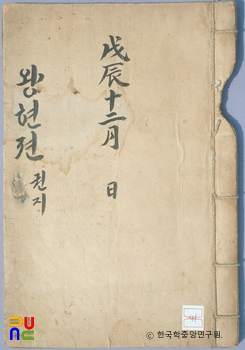 戊辰十二月 日
왕현젼 권지
ⓒ 한국학중앙연구원.